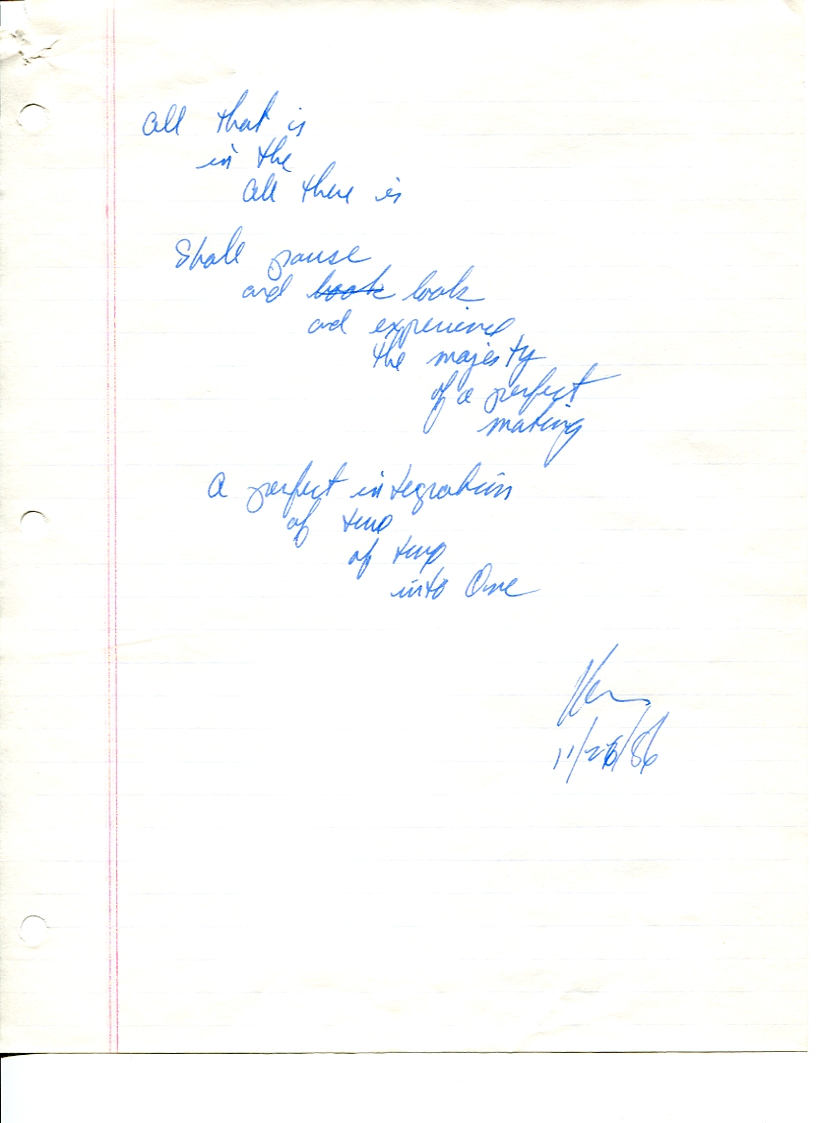 All that is
in the
All there is
Shall pause
and look look
and experience
the majesty
of a perfect
mating
A perfect integration
of two
of two
into One
11/26/86